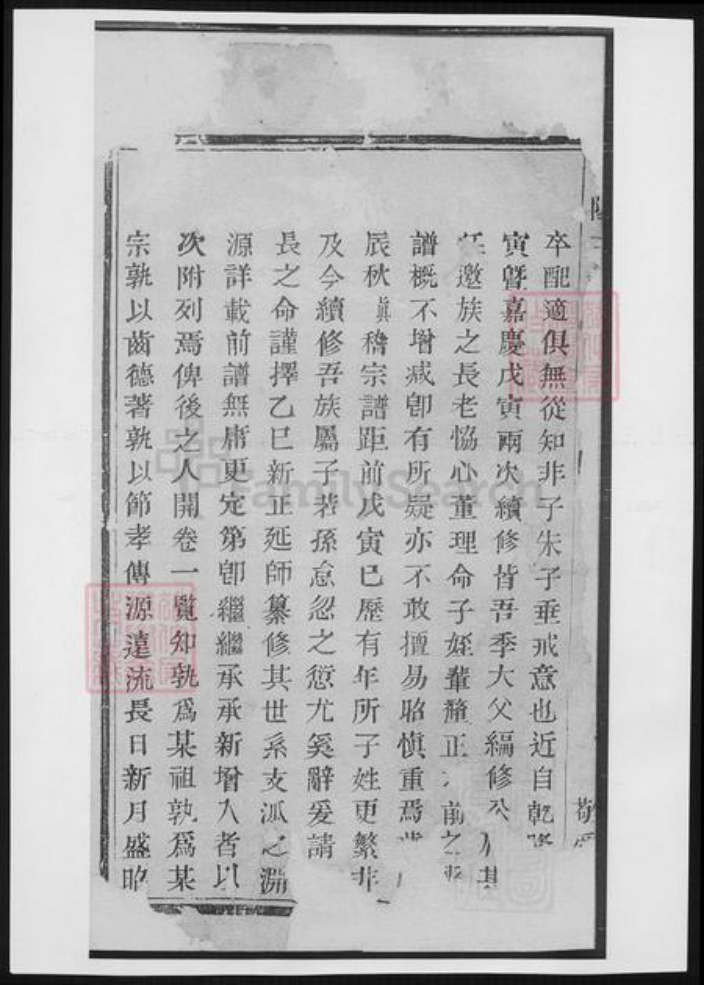 卒配適俱無從知非子朱子垂戒意也近自乾隆
寅曁嘉慶戊寅兩次續修皆吾季大父編修公 其
任邀族之長老恊心董理命子姪輩釐正 前之
譜概不增减卽有所疑亦不敢擅易昭慎重焉
辰秋眞稽宗譜距前戊寅已歷有年所子姓更繁非
及今續修吾族屬子若孫怠忽之愆尤奚辭爰請
長之命謹擇乙巳新正延師纂修其世系支派之淵
源詳載前譜無庸更定第卽繼繼承承新增入者以
次附列焉俾後之人開卷一覽知孰爲某祖孰爲某
宗孰以齒德著孰以節孝傳源遠流長日新月盛昭
敬
FamilySearch